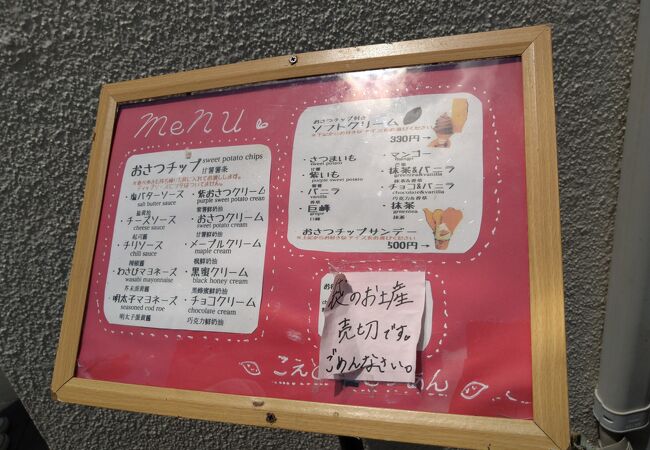 menu
おさつチップ sweet potato chips
甘薯薯条
・塩バターソース
salt butter sauce
盐黄油
・チーズソース
cheese sauce
・チリソース
chili sauce
辣椒酱
・わさびマヨネーズ
wasabi mayonnaise
芥末蛋黄酱
・明太子マヨネーズ
seasoned cod roe
明太子蛋黄酱
・紫おさつクリーム
purple sweet potato cream
紫薯鲜奶油
・おさつクリーム
sweet potato cream
甘薯鲜奶油
・メープルクリーム
maple cream
枫鲜奶油
・黒蜜クリーム
black honey cream
黑蜂蜜鲜奶油
・チョコクリーム
chocolare cream
巧克力鲜奶油
おさつチップ付き
ソフトクリーム
330円→
・さつまいも
sweet potato
甘薯
・紫いも
purple sweet potato
紫薯
・バニラ
vanilla
香草
・巨峰
grape
巨峰
・マンゴー
mango
芒果
・抹茶&バニラ
greentea&vanilla
抹茶&香草
・チョコ&バニラ
chocolate&vanilla
巧克力&香草
・抹茶
greentea
抹茶
おさつチップサンデー
500円→
夜のお土産
売切です。
ごめんなさい。